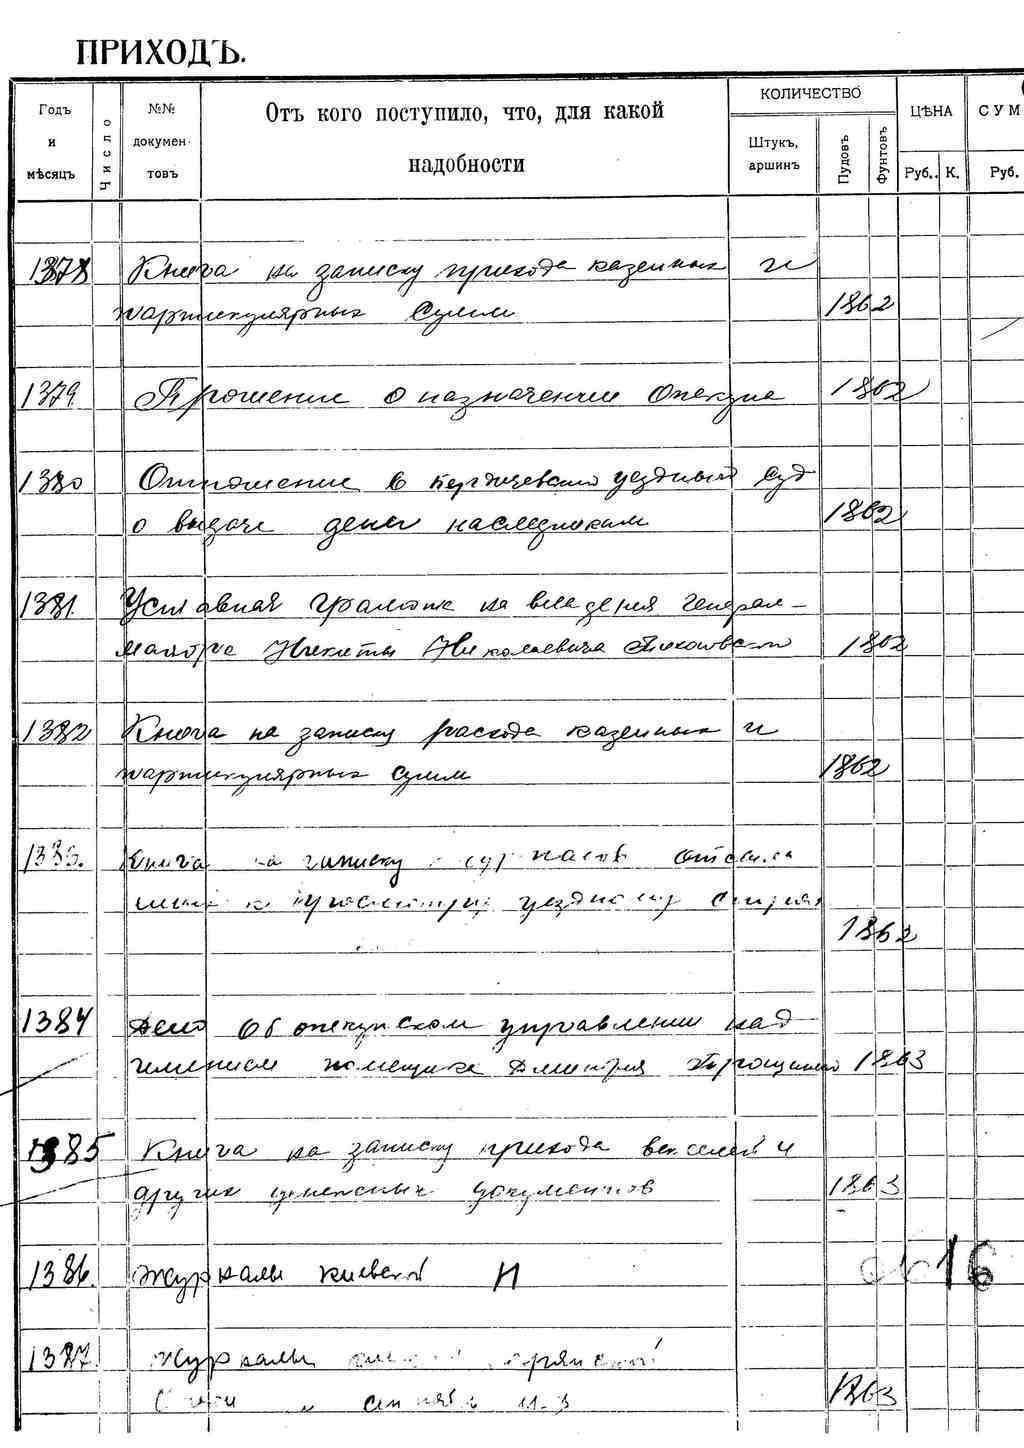 ПРИХОДЪ.
Годъ и мѣсяцъ
Число
№№ докумен- товъ
Отъ кого поступило, что, для какой
надобности
КОЛИЧЕСТВО
Штукъ, аршинъ
Пудовъ
Фунтовъ
ЦѢНА
Руб. К.
СУМ
Руб.
1378 Книга на записку прихода казенных и
партикулярных сумм 1862
1379. Прошение о назначении опекуна 1862
1380 Отношение в Бердичевский уездный суд
о выдаче денег наследникам 1862
1381. Уставная грамота на владения генерал-
майора Никиты Николаевича 1862
1382 Книга на записку расхода казенных и
партикулярных сумм 1862
Книга на записку
уездному 1862
1384 Дело об опекунском управлении над
имением помещика Дмитрия Трощинского 1863
1385 Книга на записку прихода векселей и
других денежных документов 1863
1386. Журналы киевской И 16
1387. Журналы
1863